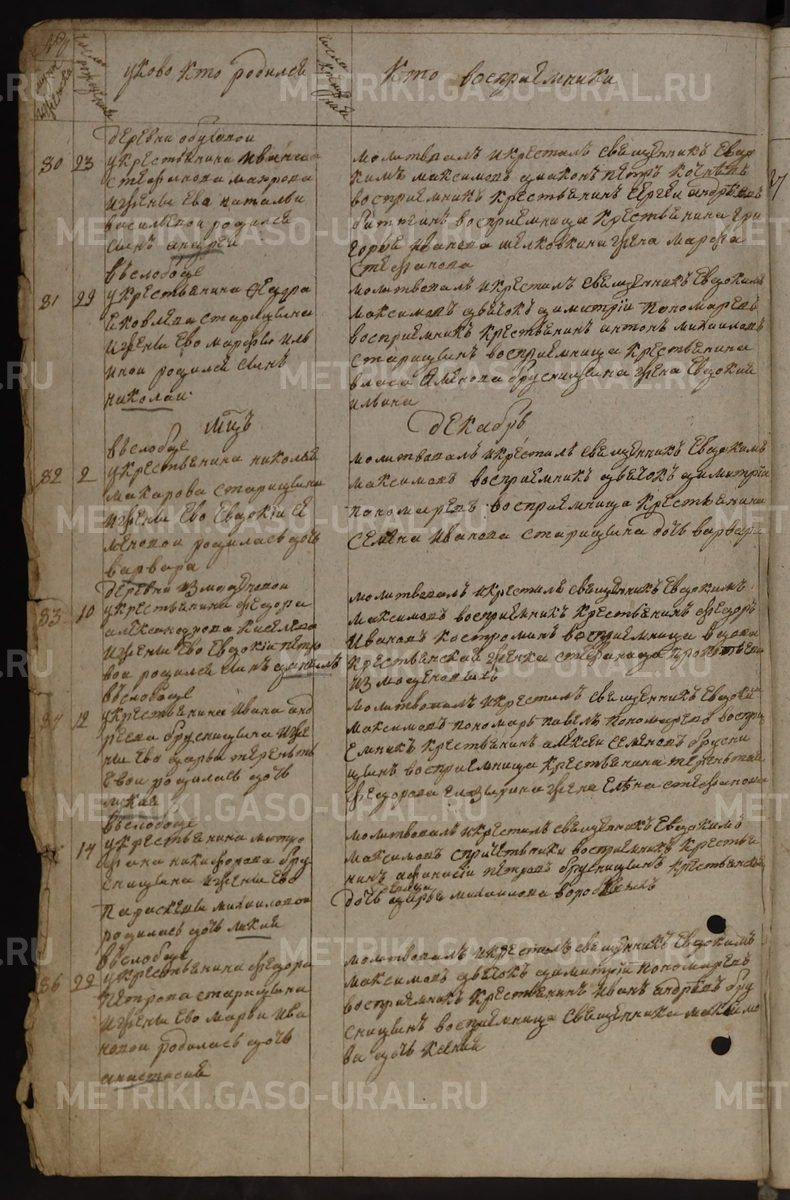 METRIKI.GASO-URAL.RU
уково кто родился
кто восприемники
деревни обуховой
80 23 укрестьянина ивана
стефанова макрова
ижены ево натальи
васильевой родился
сынъ андреи
молитвовалъ икрестилъ священникъ евдо
кимъ максимовъ дьяконъ петръ
восприемникъ крестьянинъ сергеи андреевъ
восприемница крестьянина гри
горья иванова шелковкина жена марфа
стефанова
вслободе
81 29 укрестьянина федора
яковлева старицына
ижены ево марфы иль
иной родился сынъ
николаи
молитвовалъ икрестилъ священникъ евдокимъ
максимовъ дьячокъ димитрїи пономаревъ
восприемникъ крестьянинъ антонъ михаиловъ
старицынъ восприемница крестьянина
власа семенова брусницына жена евдокия
ильина
мцъ
декабрь
вслободе
82 2 укрестьянина николая
макарова старицына
ижены ево евдокїи се
меновой родилась дочь
варвара
молитвовалъ икрестилъ священникъ евдокимъ
максимовъ восприемникъ дьячокъ димитрїи
пономаревъ восприемница крестьянина
семена иванова старицына дочь варвара
деревни измоденовой
83 10 укрестьянина федора
александрова киселева
ижены ево евдокїи петро
вой родился сынъ данїилъ
молитвовалъ икрестилъ священникъ евдокимъ
максимовъ восприемникъ крестьянинъ федоръ
ивановъ костроминъ восприемница вдова
крестьянская женка степанида
измоденовыхъ
вслободе
84 12 укрестьянина ивана анд
реева брусницына иже
ны ево дарьи теренть
евой родилась дочь
лукия
молитвовалъ икрестилъ священникъ евдоки
максимовъ пономарь павелъ пономаревъ воспри
емникъ крестьянинъ алексеи семеновъ брусни
цынъ восприемница крестьянина терентия
федорова елизарина жена елена стефанова
вслободе
14 укрестьянина митро
фана никифорова бру
сницына ижены ево
параскевы михаиловой
родилась дочь лукия
молитвовалъ икрестилъ священникъ евдокимъ
максимовъ спричетники восприемникъ крестья
нинъ афанасїи петровъ брусницынъ крестьянская
дочь девица дарья михаилова воробьевыхъ
вслободе
86 22 укрестьянина федора
петрова старицына
ижены ево марьи ива
новой родилась дочь
анастасия
молитвовалъ икрестилъ священникъ евдокимъ
максимовъ дьячокъ димитрїи пономаревъ
восприемникъ крестьянинъ иванъ андреевъ бру
сницынъ восприемница священника максимо
ва дочь ксения